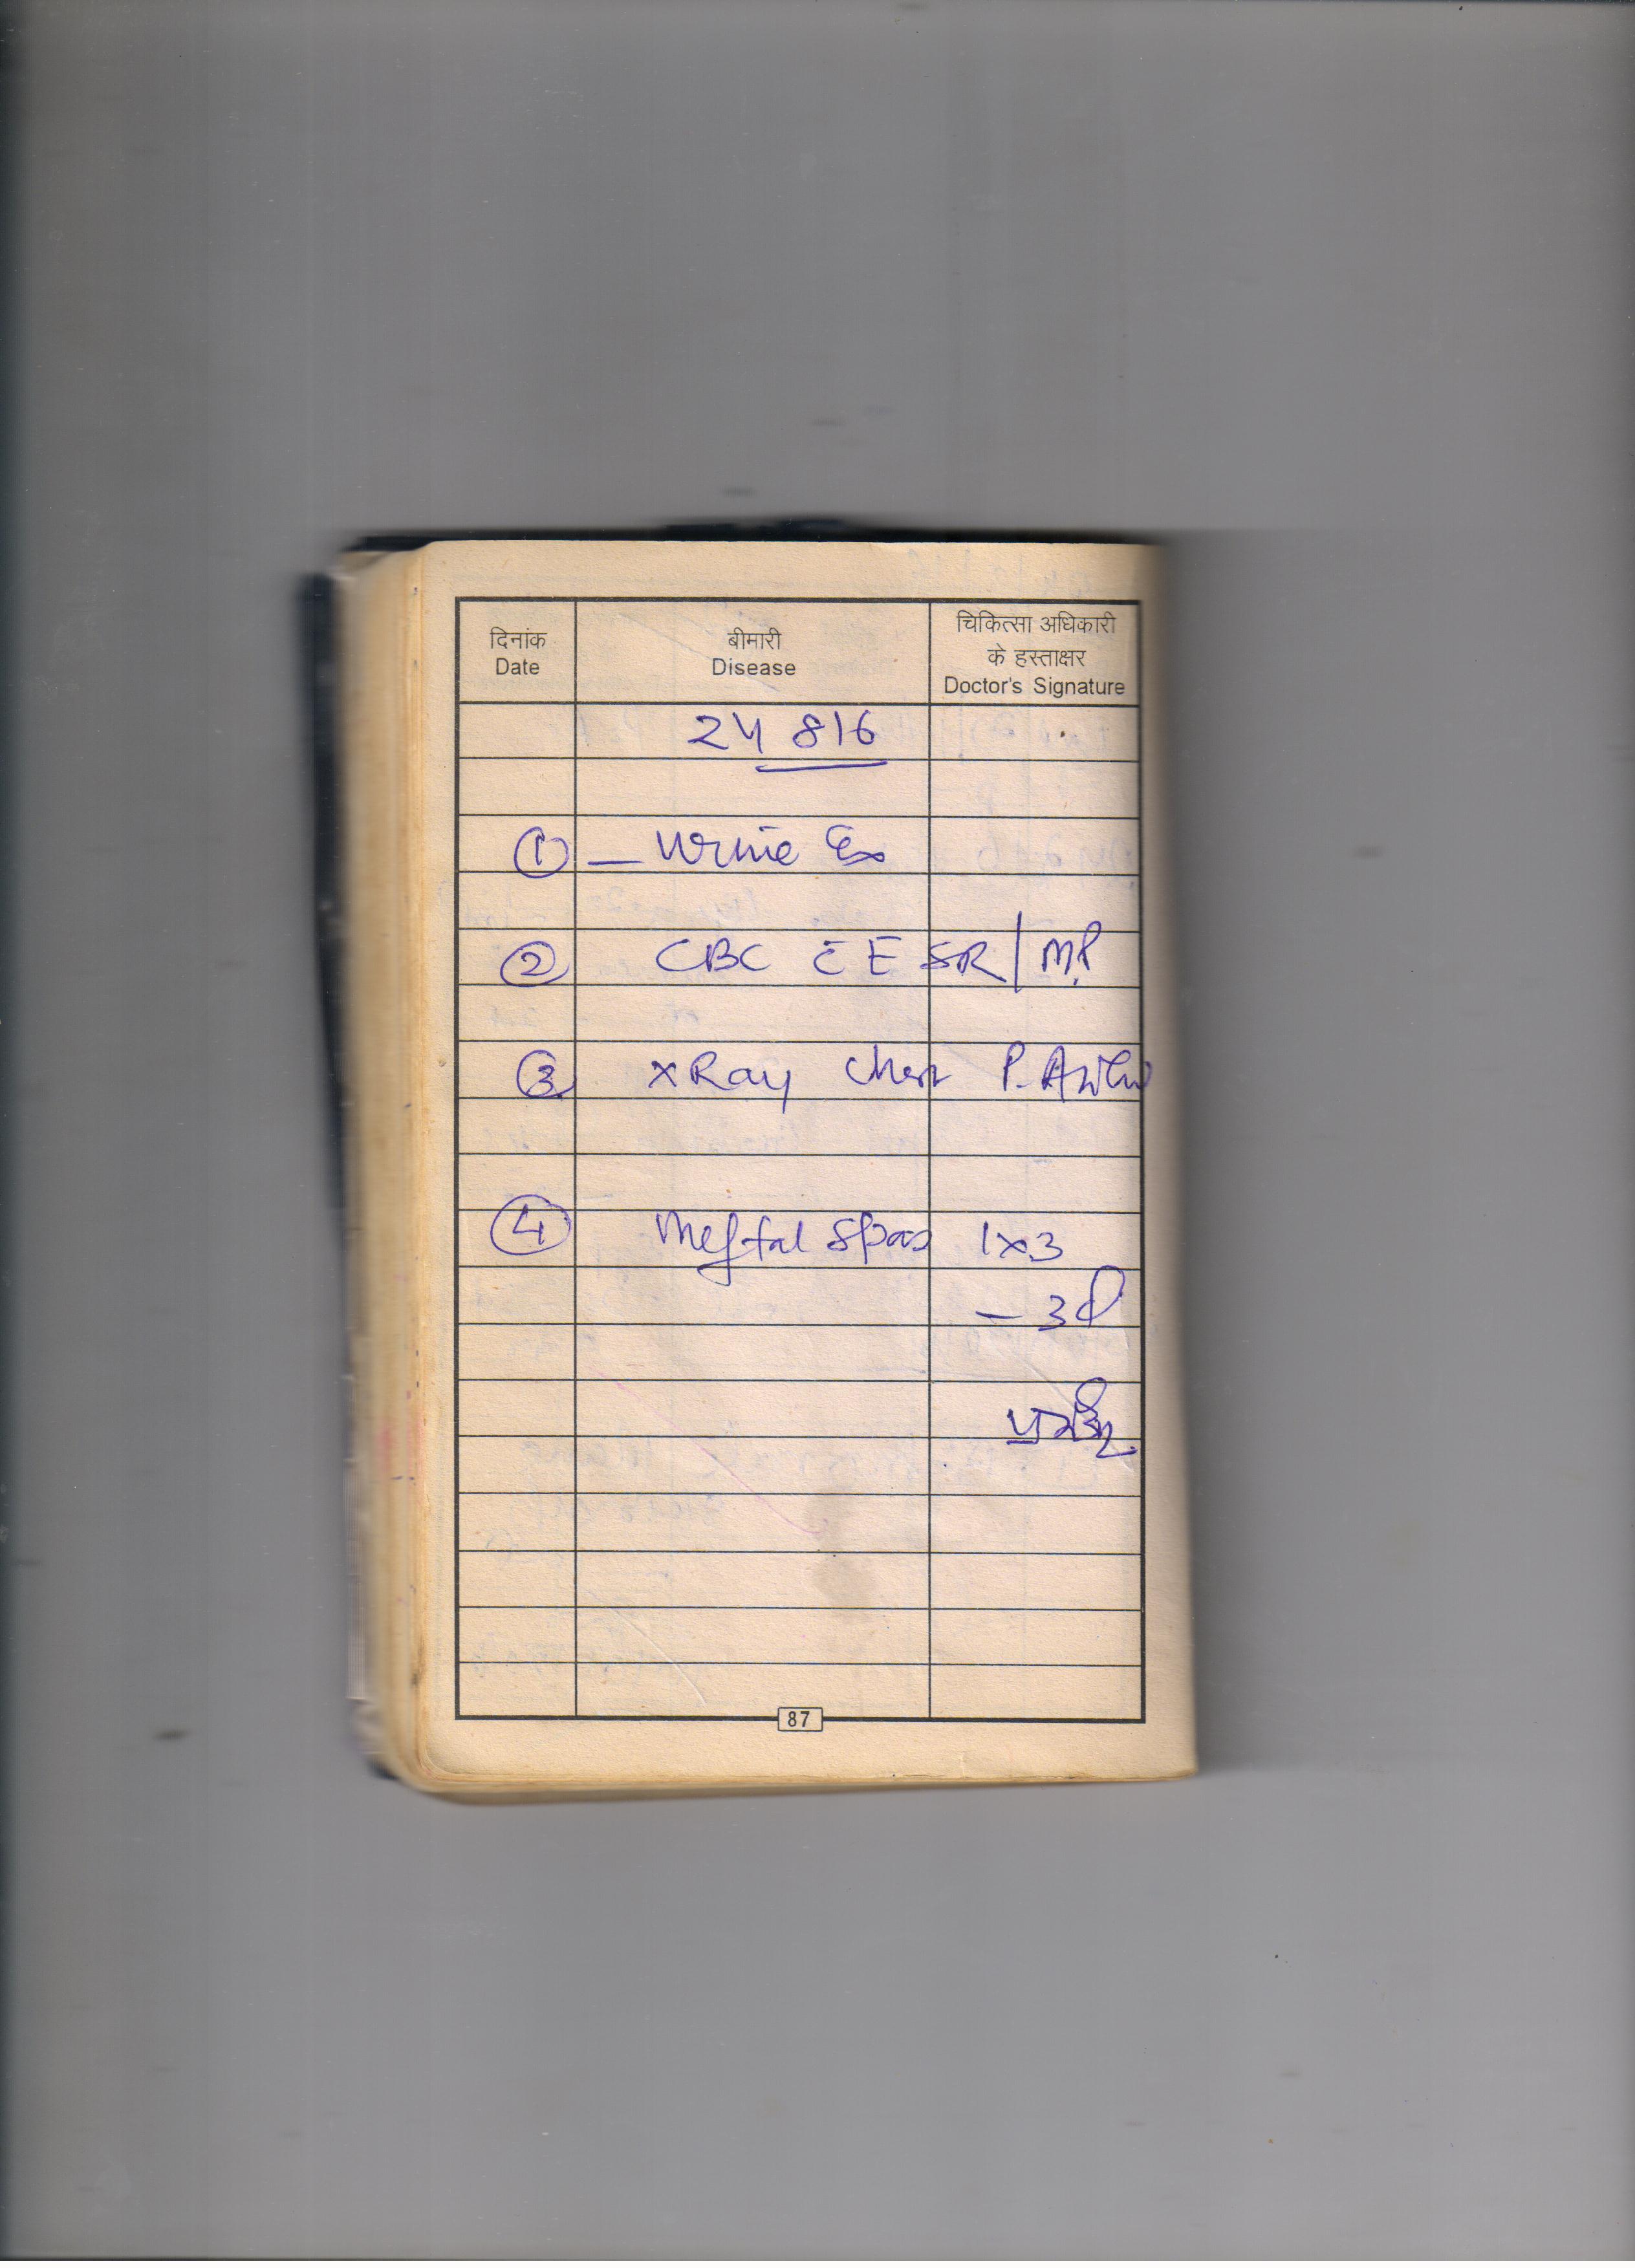 दिनांक
Date
बीमारी
Disease
चिकित्सा अधिकारी
के हस्ताक्षर
Doctor's Signature
24 816
① — Urine Ex
② CBC c̄ ESR / M.P
③ X Ray Chest P.A View
④ Meftal Spas 1x3
— 3d
87